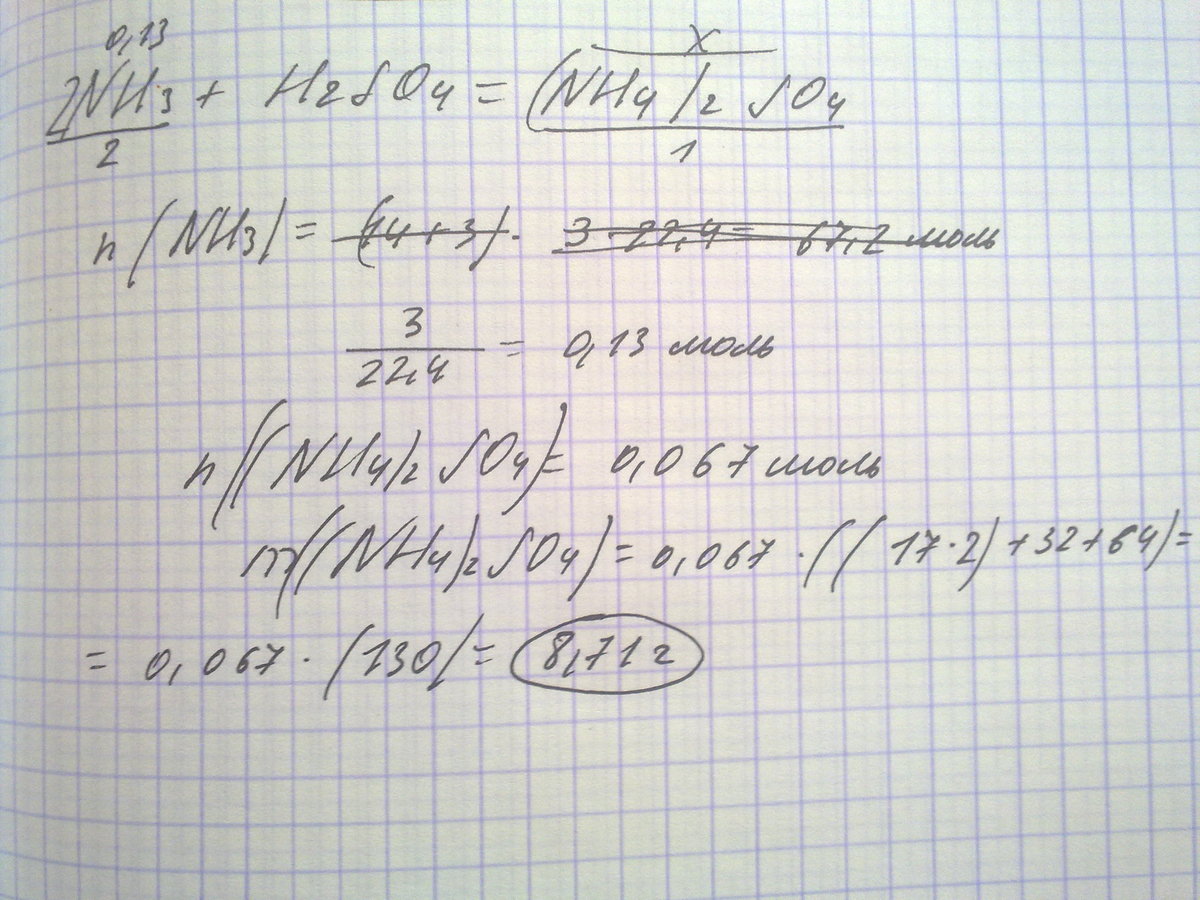 0,13 x
2NH3 + H2SO4 = (NH4)2SO4
2 1
n(NH3) = (14+3) · 3·22,4 = 67,2 моль
3
22,4 = 0,13 моль
n((NH4)2SO4) = 0,067 моль
m((NH4)2SO4) = 0,067 · ((17·2)+32+64) =
= 0,067 · (130) = 8,71 г